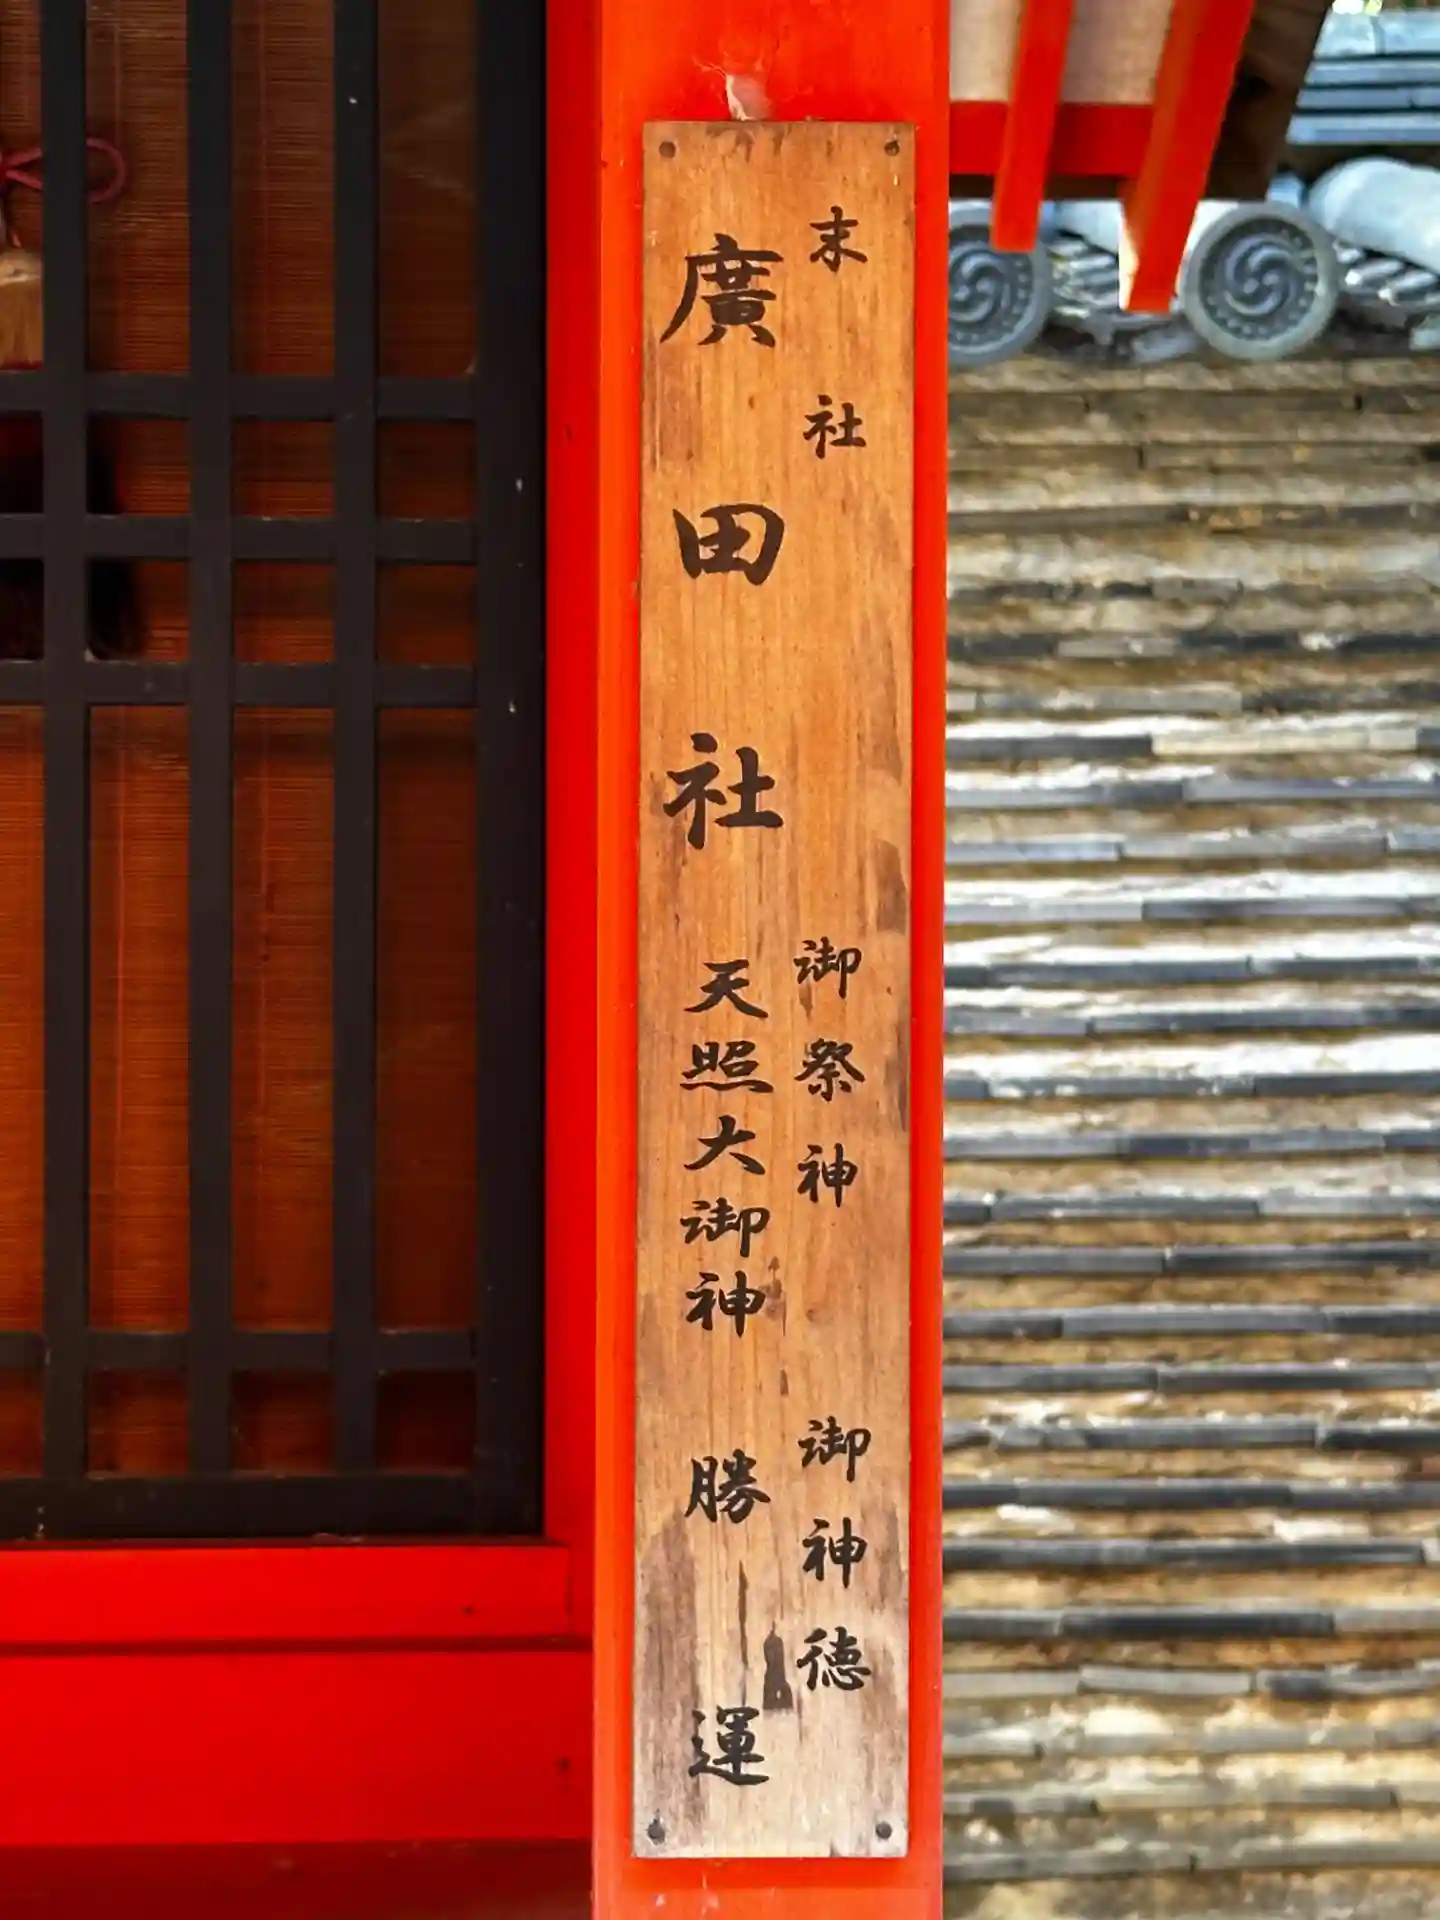 末社 御祭神 御神徳
廣田社 天照大御神 勝運